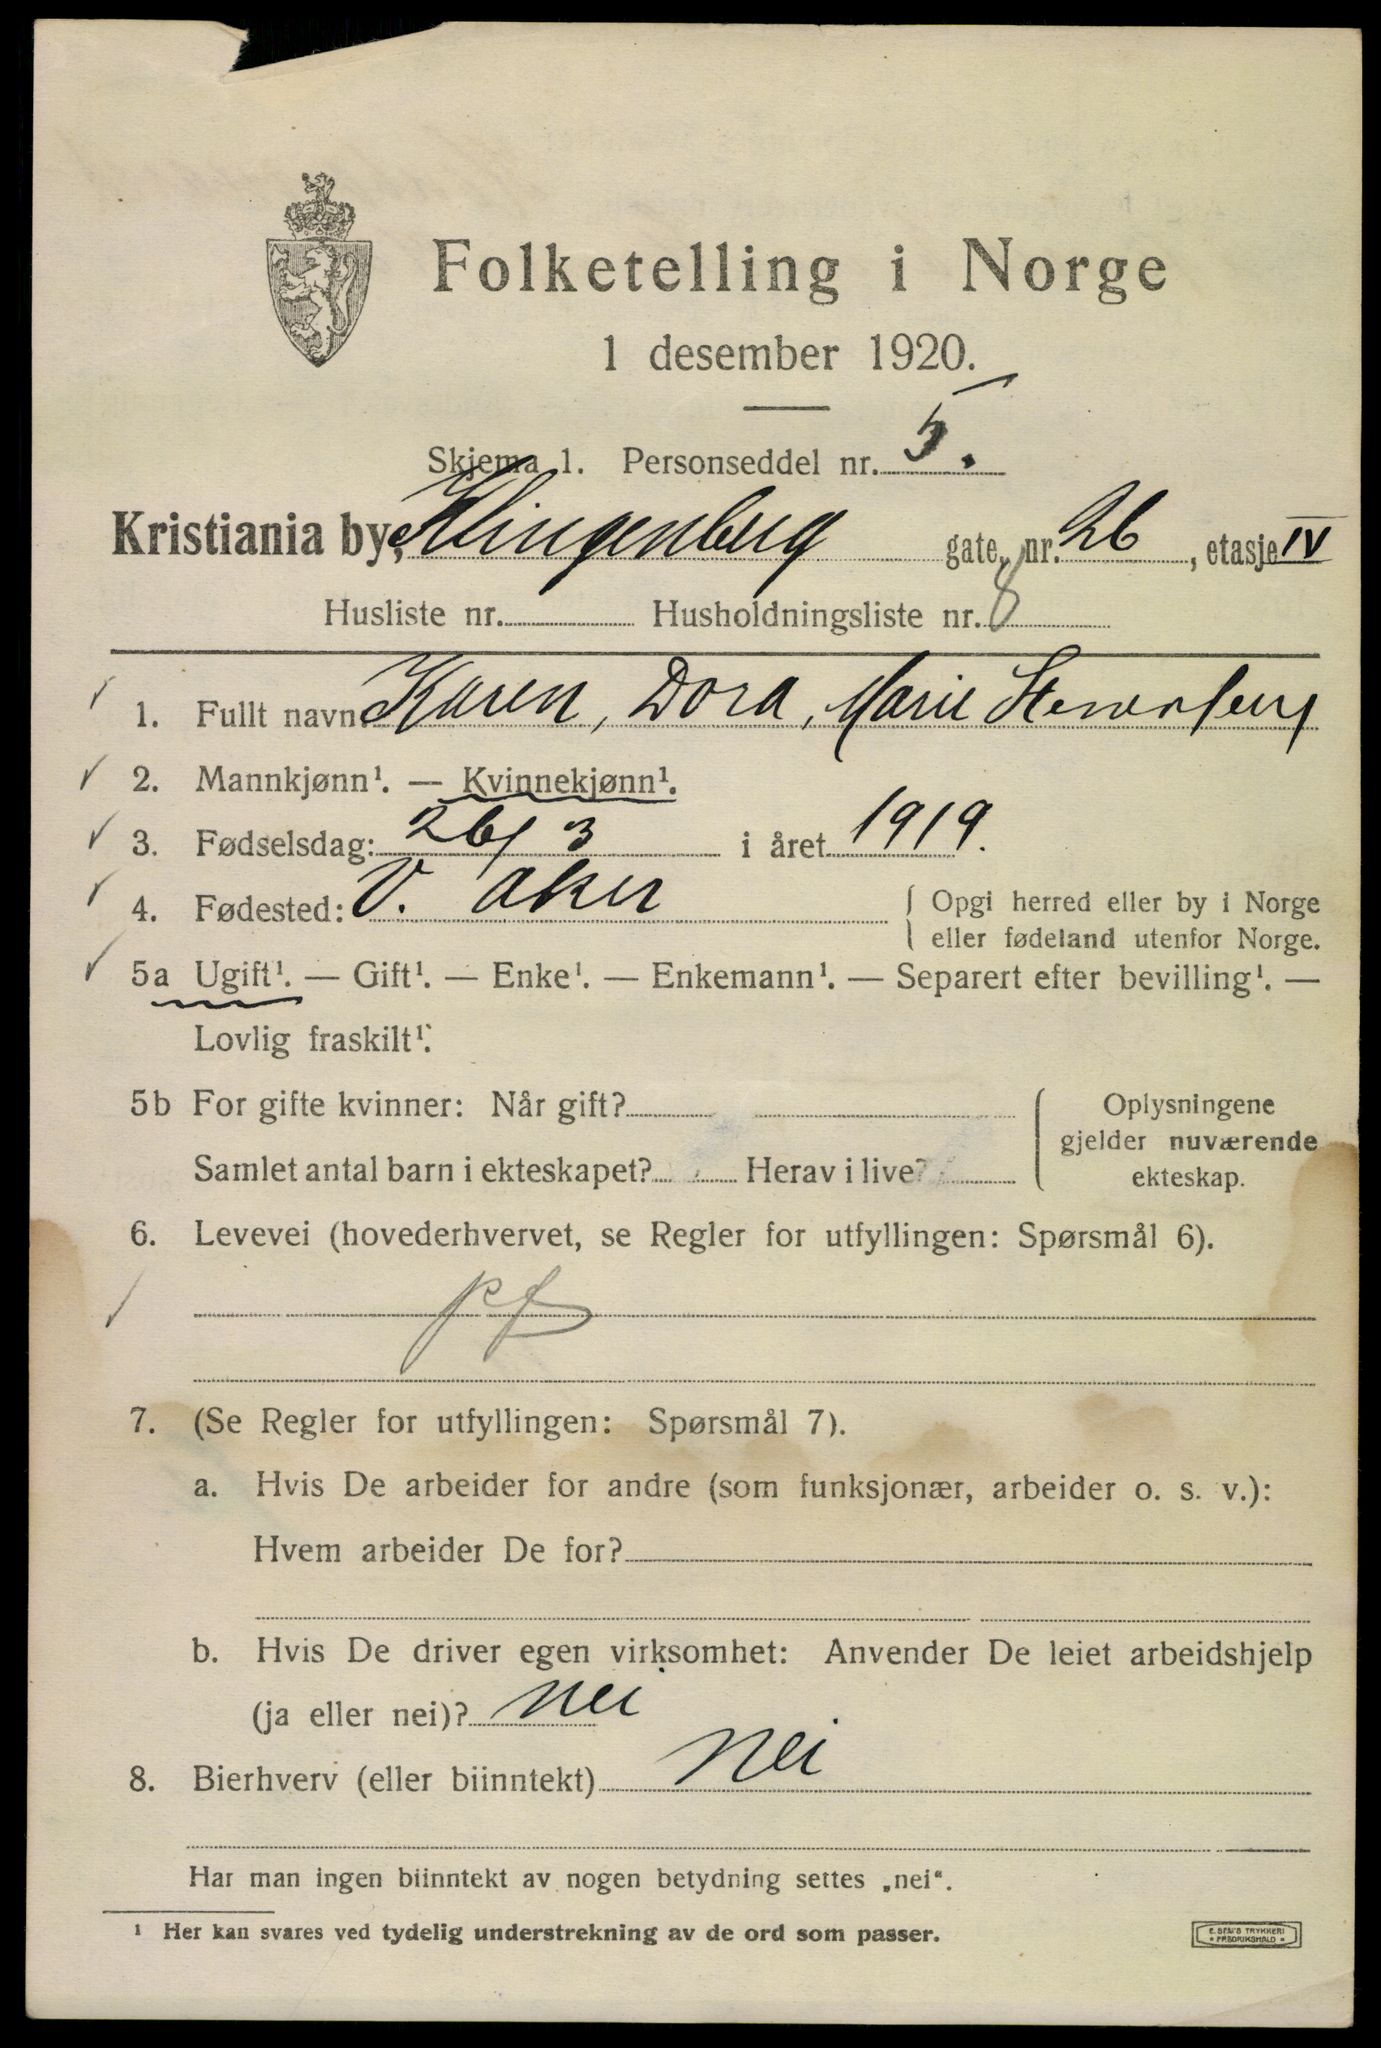 Folketelling i Norge
1 desember 1920.
Skjema 1. Personseddel nr. 5.
Kristiania by, Klingenberg gate, nr. 26, etasje IV
Husliste nr. Husholdningsliste nr. 8
1. Fullt navn Karen, Dora, Marie
2. Mannkjønn¹. — Kvinnekjønn¹.
3. Fødselsdag: 26/3 i året 1919.
4. Fødested: V. Aker { Opgi herred eller by i Norge
eller fødeland utenfor Norge.
5a Ugift¹. — Gift¹. — Enke¹. — Enkemann¹. — Separert efter bevilling¹. —
Lovlig fraskilt¹.
5b For gifte kvinner: Når gift? { Oplysningene
gjelder nuværende
Samlet antal barn i ekteskapet? Herav i live? ekteskap.
6. Levevei (hovederhvervet, se Regler for utfyllingen: Spørsmål 6).
pf
7. (Se Regler for utfyllingen: Spørsmål 7).
a. Hvis De arbeider for andre (som funksjonær, arbeider o. s. v.):
Hvem arbeider De for?
b. Hvis De driver egen virksomhet: Anvender De leiet arbeidshjelp
(ja eller nei)? nei
8. Bierhverv (eller biinntekt) nei
Har man ingen biinntekt av nogen betydning settes „nei“.
¹ Her kan svares ved tydelig understrekning av de ord som passer.
E. SEM'S TRYKKERI
* FREDRIKSHALD *